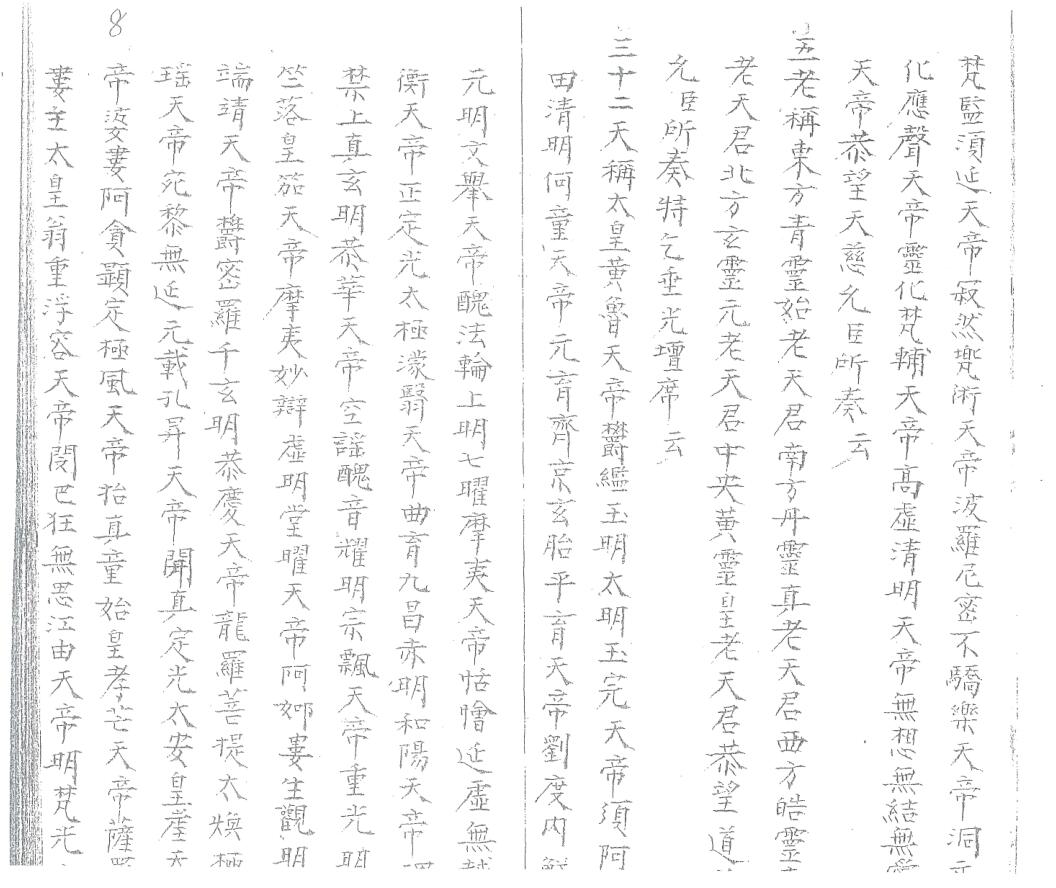 梵監須延天帝寂然兠術天帝波羅尼密不驕樂天帝洞
化應聲天帝靈化梵輔天帝高虛清明天帝無想無結無愛
天帝恭望天慈允臣所奏云
五老稱東方青靈始老天君南方丹靈真老天君西方皓靈
老天君北方玄靈元老天君中央黃靈皇老天君恭望道
允臣所奏特乞垂光壇席云
三十二天稱太皇黃曾天帝鬱繿玉明太明玉完天帝須阿
田清明何童天帝元育齊京玄胎平育天帝劉度內鮮
元明文舉天帝醜法輪上明七曜摩夷天帝恬憎延虛無越
衡天帝正定光太極濛翳天帝曲育九昌赤明和陽天帝
禁上真玄明恭華天帝空謠醜音耀明宗飄天帝重光明
竺落皇笳天帝摩夷妙辯虛明堂曜天帝阿䢼婁生觀明
端靖天帝鬱密羅千玄明恭慶天帝龍羅菩提太煥極
瑤天帝宛黎無延元載孔昇天帝開真定光太安皇崖天
帝婆婁阿貪顯定極風天帝招真童始皇孝芒天帝薩羅
婁主太皇翁重浮容天帝閔巴狂無思江由天帝明梵光
8